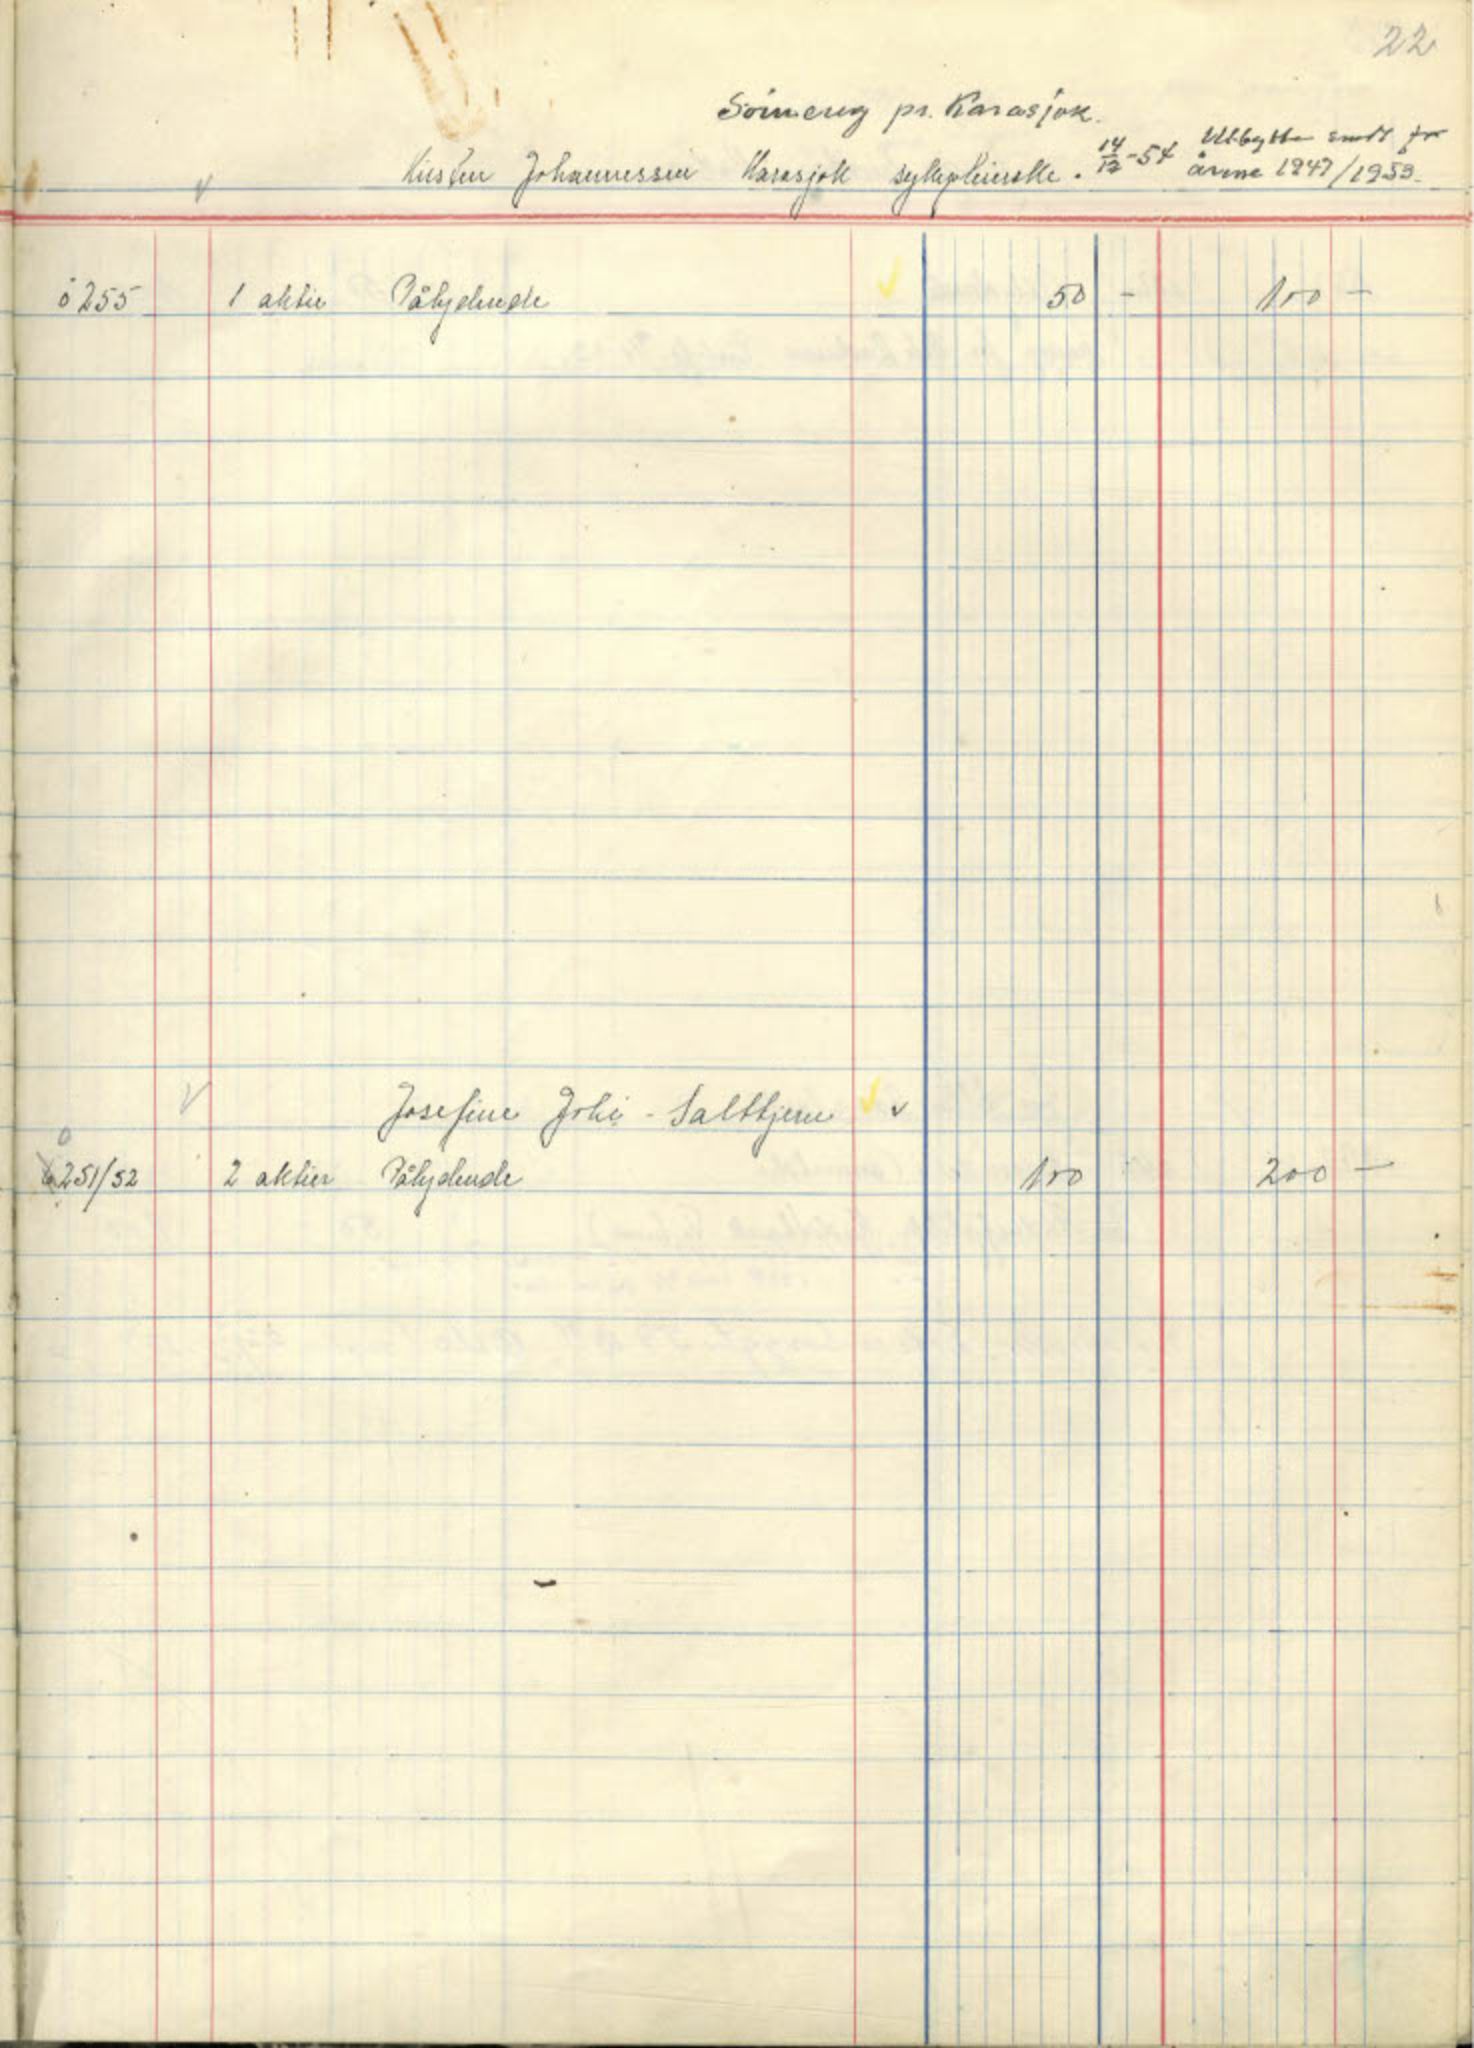 22
pr. Karasjok.
Johannessen Karasjok sykepleierske. 14/12-54 Utbytte sendt for
årene 1947/1953.
ö 255 1 aktie Pålydende 50 - 100 -
Josefine Johi - Saltkjern
251/52 2 aktier Pålydende 100 200 -